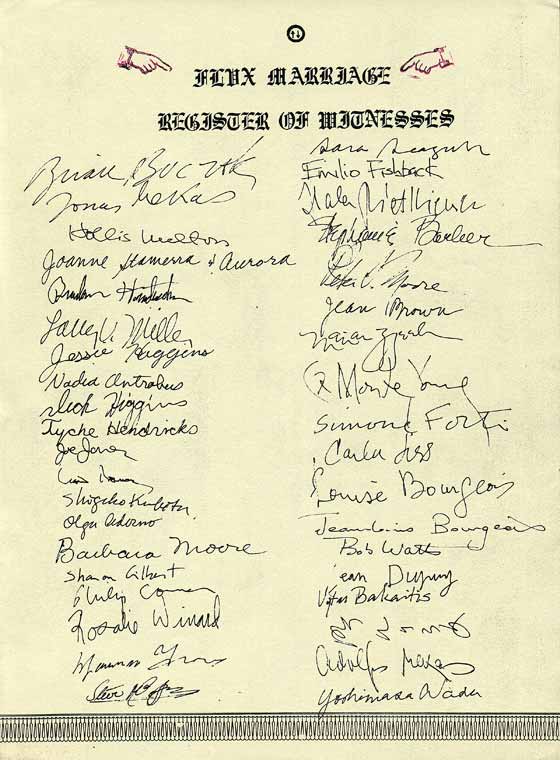 FLVX MARRIAGE
REGISTER OF WITNESSES
Brian Buczak
Jonas Mekas
Hollis Melton
Joanne Stamerra & Aurora
Larry Miller
Jessie Higgins
Nadia Antrobus
Dick Higgins
Tyche Hendricks
Joe Jones
Shigeko Kubota
Olga Adorno
Barbara Moore
Sharon Gilbert
Philip Corner
Rosalie Winard
Sara Seagull
Emilio Fishback
Stephanie Barber
Peter Moore
Jean Brown
La Monte Young
Simone Forti
Carla Liss
Louise Bourgeois
Jean-Louis Bourgeois
Bob Watts
Jean Dupuy
Vytas Bakaitis
Adolfas Mekas
Yoshimasa Wada